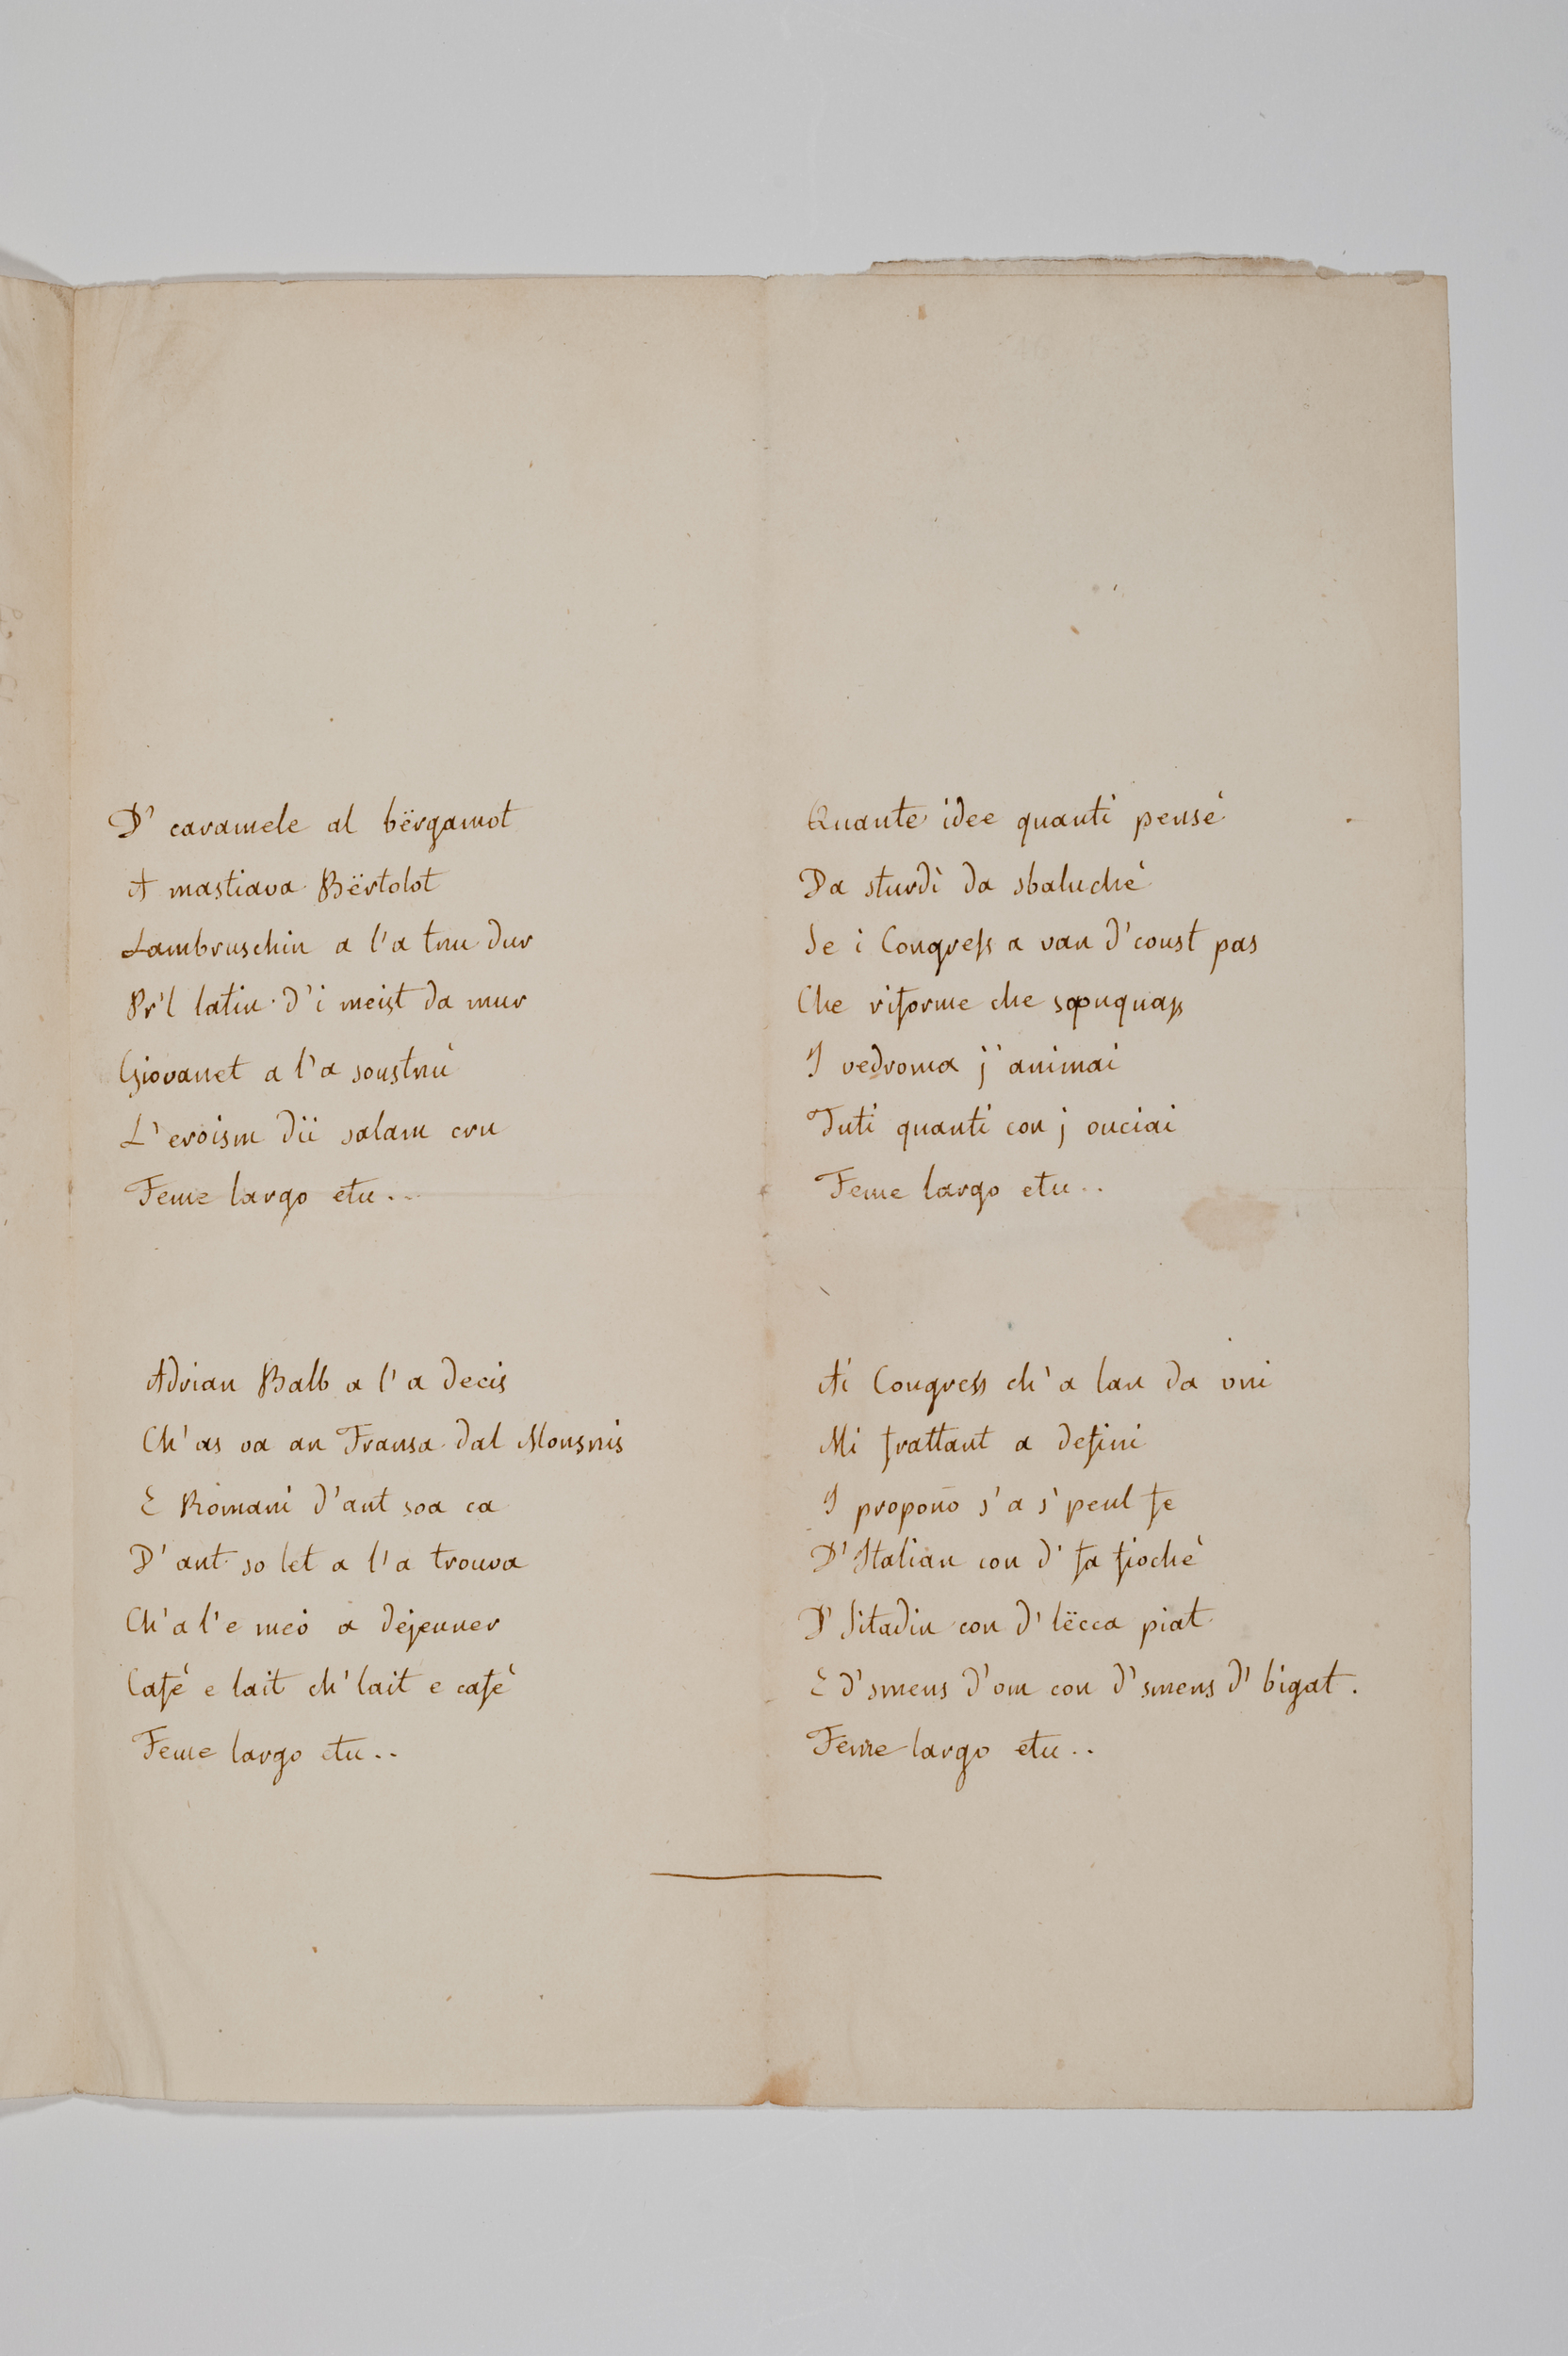 D' caramele al bërgamot
A mastiava Bërtolot
Lambruschin a l'a tnu dur
Pr'l latin d'i meist da mur
Giovanet a l'a soustnù
L'eroism dii salam cru
Feme largo etu...
Adrian Balb a l'a decis
Ch'as va an Fransa dal Monsnis
E Romani d'ant soa ca
D'ant so let a l'a trouva
Ch'a l'e mei a dejeuner
Cafè e lait ch'lait e cafè
Feme largo etu..
Quante idee quanti pensè
Da sturdì da sbaluchè
Se i Congress a van d'coust pas
Che riforme che
I vedroma j'animai
Tuti quanti con j ouciai
Feme largo etu..
Ai Congress ch'a l'an da vni
Mi frattant a defini
I propono s'a s'peul fe
D'Italian con d' fa fiochè
D' Sitadin con d' lëcca piat
E d'smens d'om con d'smens d' bigat.
Feme largo etu..